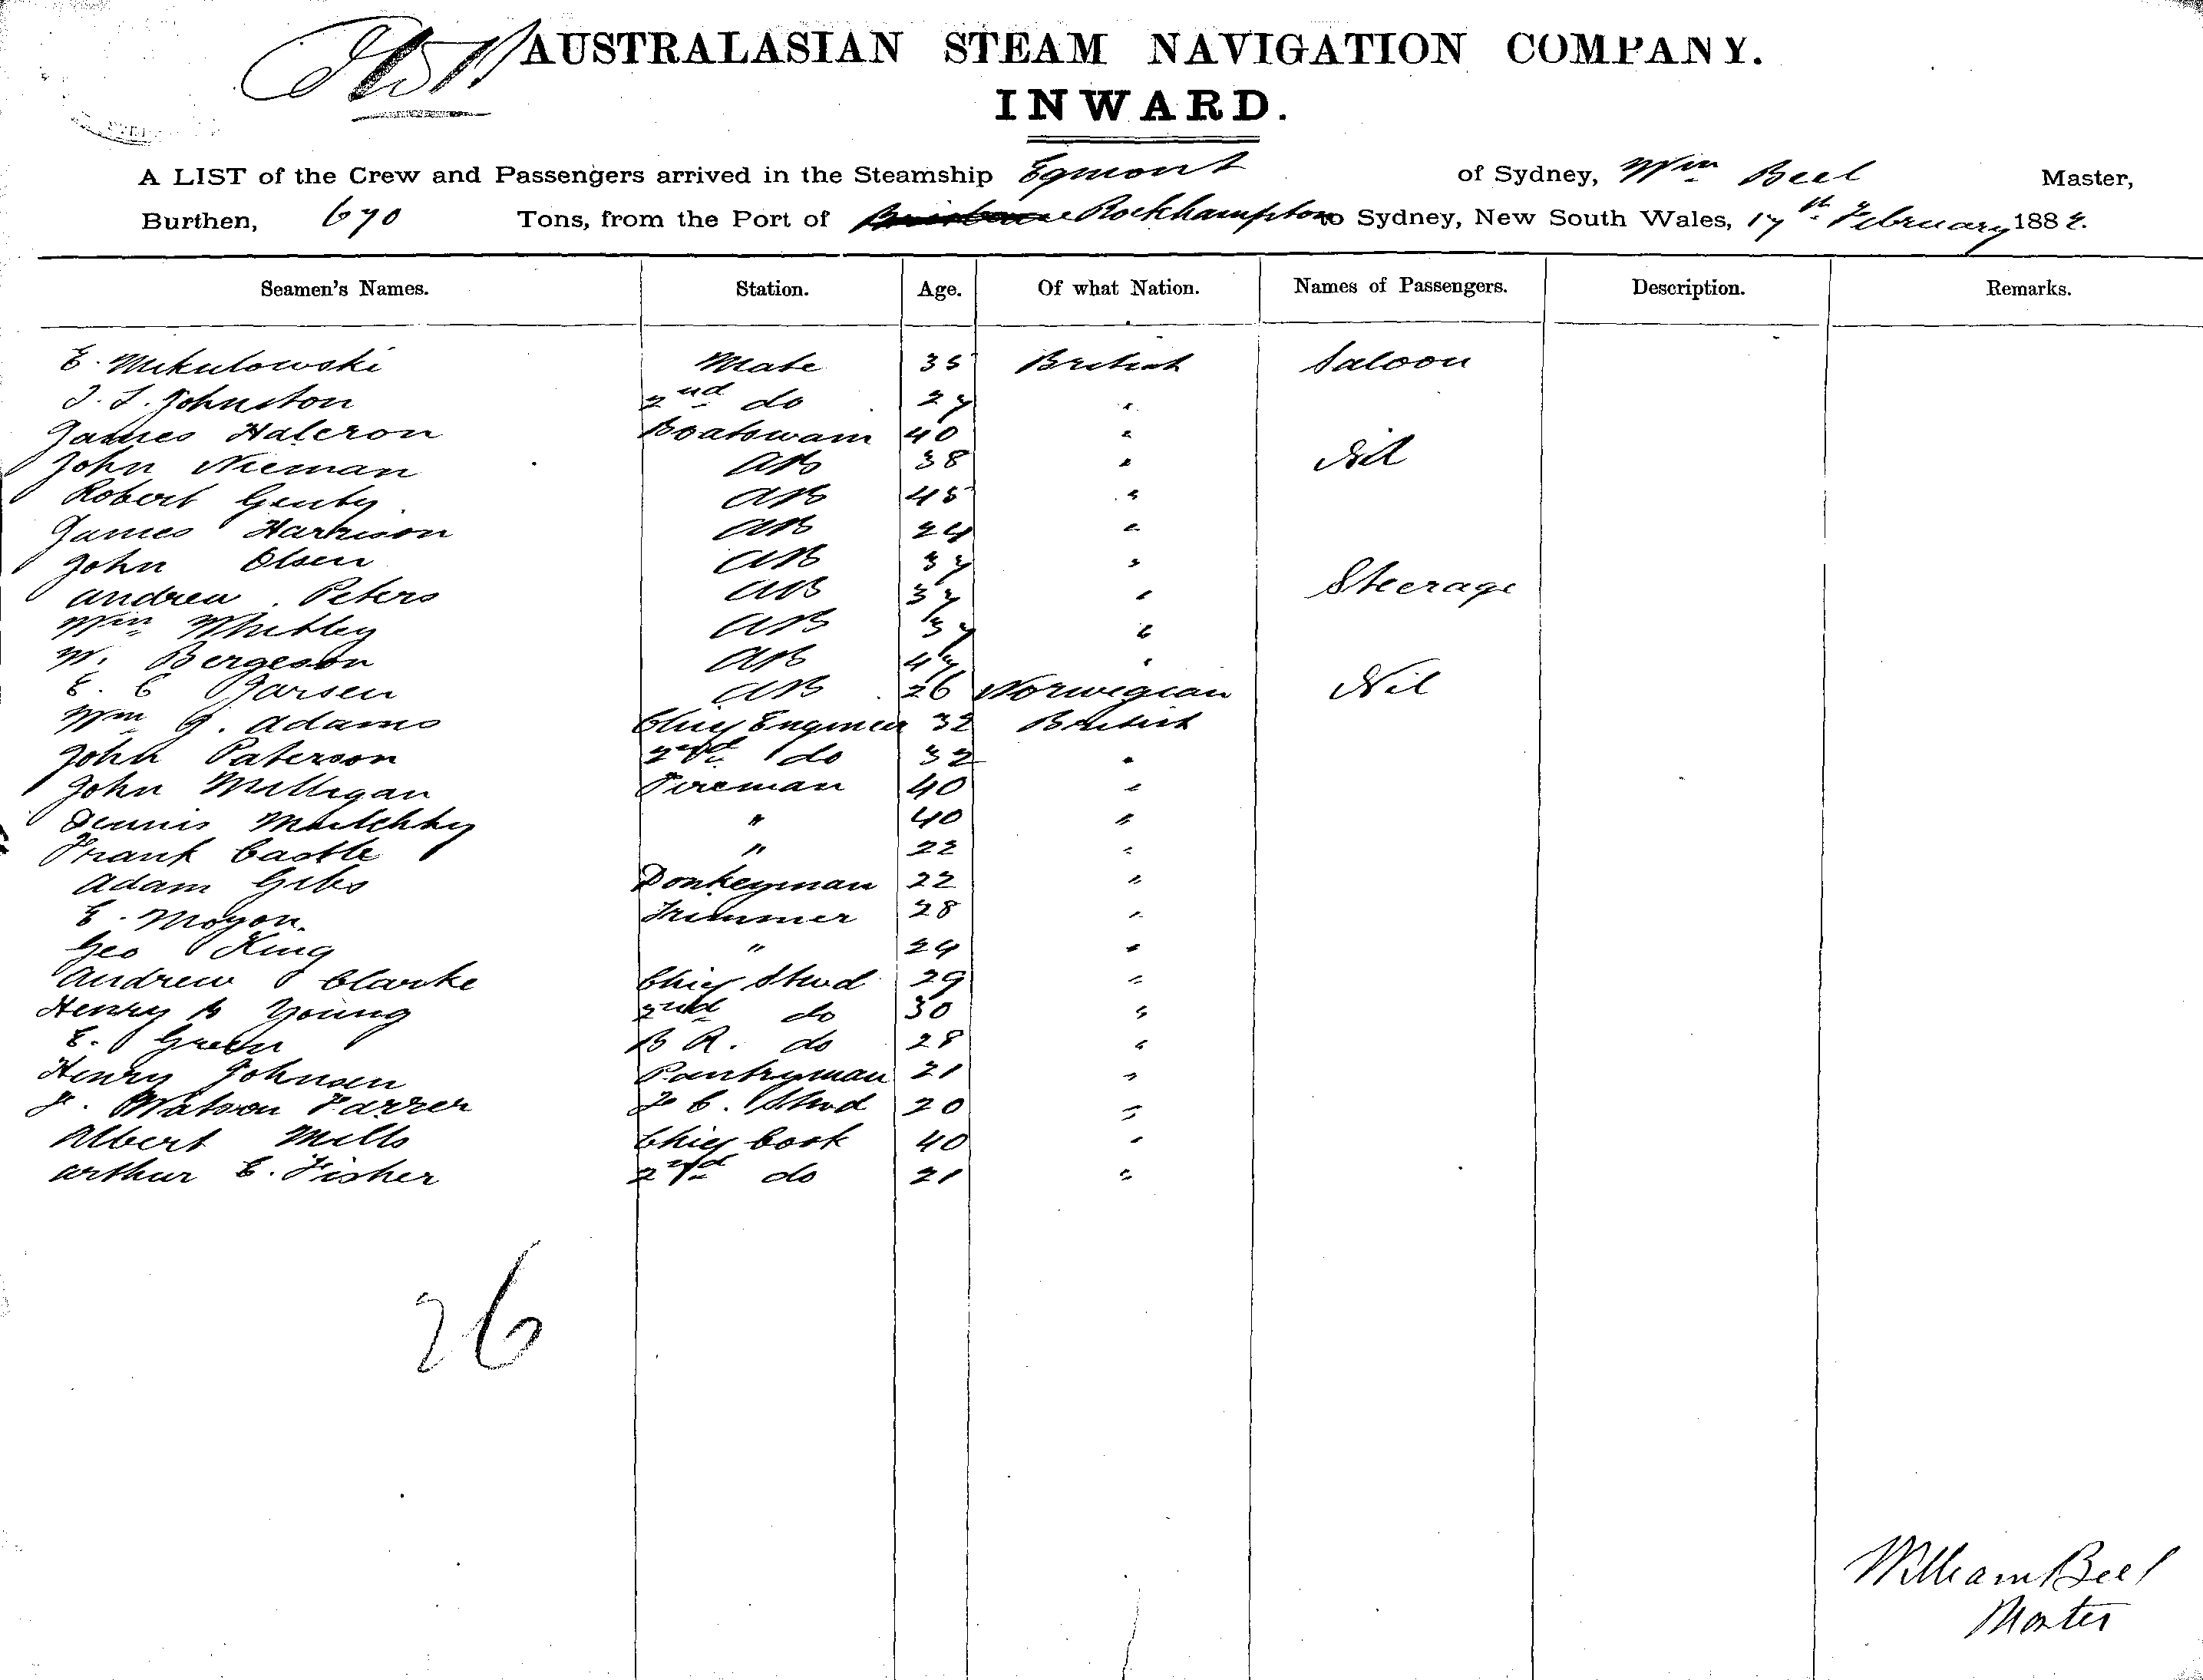 AUSTRALASIAN STEAM NAVIGATION COMPANY.
INWARD.
A LIST of the Crew and Passengers arrived in the Steamship Egmont of Sydney, Wm Beel Master,
Burthen, 690 Tons, from the Port of Rockhampton to Sydney, New South Wales, 17th February 1882.
Seamen's Names. Station. Age. Of what Nation. Names of Passengers. Description. Remarks.
E. Mikulowski Mate 35 British Saloon
J. L. Johnston 2nd do 27 "
James Halcron Boatswain 40 "
John Nieman AB 38 " Nil
Robert Genty AB 45 "
James Harrison AB 24 "
John Olsen AB 37 "
Andrew Peters AB 37 " Steerage
Wm Whitley AB 37 "
W. Bergeson AB 47 "
E. C Jarsen AB 26 Norwegian Nil
Wm G. Adams Chief Engineer 32 British
John Paterson 2nd do 32 "
John Milligan Fireman 40 "
Dennis " 40 "
Frank Castle " 22 "
Adam Gibs Donkeyman 22 "
E. Moyon. Trimmer 28 "
Geo King " 24 "
Andrew Clarke Chief Stwd 29 "
Henry B Young 2nd do 30 "
E. Green B R. do 28 "
Henry Johnsen Pantryman 21 "
F. Watson Farrer F C. Stwd 20 "
Albert Mills Chief Cook 40 "
Arthur E. Fisher 2nd do 21 "
26
William Beel
Master